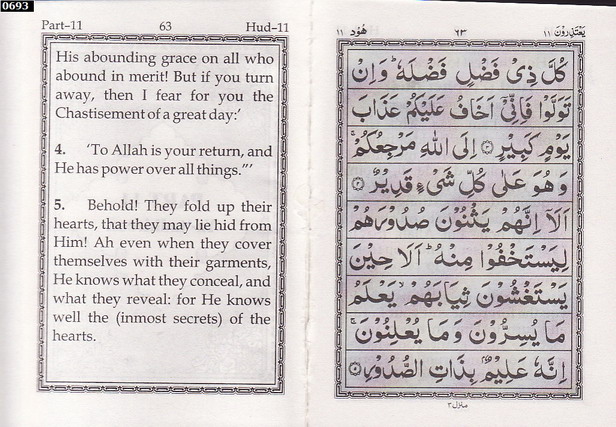 0693
Part–11 63 Hud–11
His abounding grace on all who
abound in merit! But if you turn
away, then I fear for you the
Chastisement of a great day:’
4. ‘To Allah is your return, and
He has power over all things.”’
5. Behold! They fold up their
hearts, that they may lie hid from
Him! Ah even when they cover
themselves with their garments,
He knows what they conceal, and
what they reveal: for He knows
well the (inmost secrets) of the
hearts.
يَعْتَذِرُوْنَ ١١ ٦٣ هُوْد ١١
كُلَّ ذِىْ فَضْلٍ فَضْلَهٗ ؕ وَاِنْ
تَوَلَّوْا فَاِنِّىْۤ اَخَافُ عَلَيْكُمْ عَذَابَ
يَوْمٍ كَبِيْرٍ ۝٣ اِلَى اللّٰهِ مَرْجِعُكُمْ ۚ
وَهُوَ عَلٰى كُلِّ شَىْءٍ قَدِيْرٌ ۝٤
اَلَاۤ اِنَّهُمْ يَثْنُوْنَ صُدُوْرَهُمْ
لِيَسْتَخْفُوْا مِنْهُ ؕ اَلَا حِيْنَ
يَسْتَغْشُوْنَ ثِيَابَهُمْ ۙ يَعْلَمُ
مَا يُسِرُّوْنَ وَمَا يُعْلِنُوْنَ ۚ
اِنَّهٗ عَلِيْمٌۢ بِذَاتِ الصُّدُوْرِ ۝٥
منزل ٣